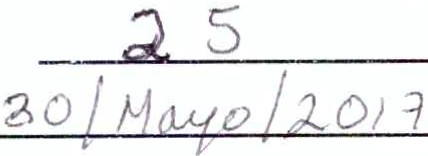 25
30/Mayo/2017